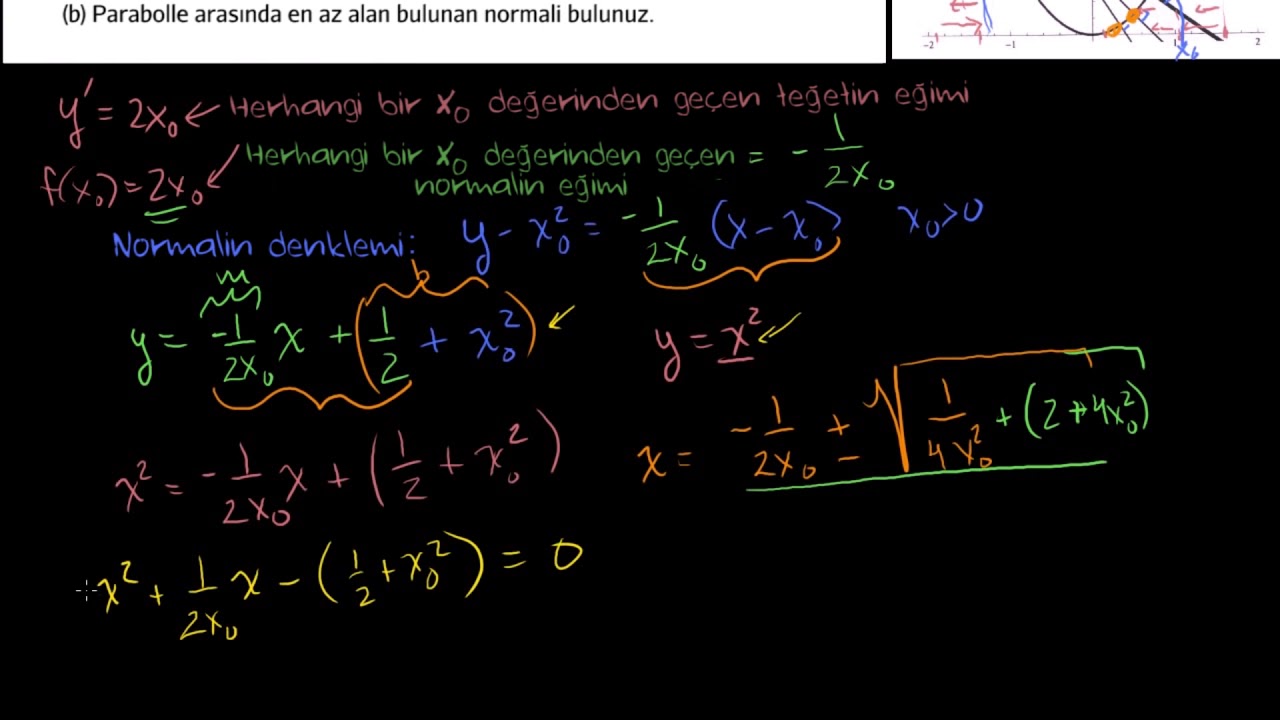 (b) Parabolle arasında en az alan bulunan normali bulunuz.
-2 -1 1 2
x₀
y' = 2x₀ ← Herhangi bir x₀ değerinden geçen teğetin eğimi
f(x₀) = 2x₀ Herhangi bir x₀ değerinden geçen = - 1/(2x₀)
normalin eğimi
Normalin denklemi: y - x₀² = -1/(2x₀) (x - x₀) x₀ > 0
m b
y = -1/(2x₀) x + (1/2 + x₀²) y = x²
x² = -1/(2x₀) x + (1/2 + x₀²) x = -1/(2x₀) ± √(1/(4x₀²) + (2 + 4x₀²))
x² + 1/(2x₀) x - (1/2 + x₀²) = 0